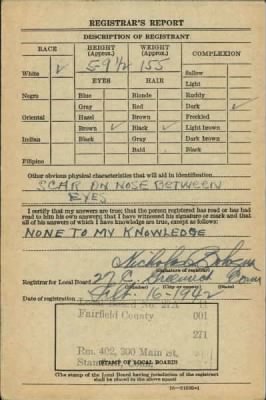 REGISTRAR'S REPORT
DESCRIPTION OF REGISTRANT
RACE HEIGHT (Approx.) WEIGHT (Approx.) COMPLEXION
5-9 1/2 155
White ✓ Sallow
EYES HAIR Light
Negro Blue Blonde Ruddy
Gray Red Dark ✓
Oriental Hazel Brown Freckled
Brown ✓ Black ✓ Light brown
Indian Black Gray Dark brown
Bald Black
Filipino
Other obvious physical characteristics that will aid in identification
SCAR ON NOSE BETWEEN
EYES
I certify that my answers are true; that the person registered has read or has had
read to him his own answers; that I have witnessed his signature or mark and that
all of his answers of which I have knowledge are true, except as follows:
NONE TO MY KNOWLEDGE
Nicholas
Signature of registrar
Registrar for Local Board 27 C Greenwich Conn
(Number) (City or county) (State)
Date of registration Feb. 16-1942
27A
Fairfield County 001
271
Rm. 402, 300 Main st,
STAMP OF LOCAL BOARD
(The stamp of the Local Board having jurisdiction of the registrant
shall be placed in the above space)